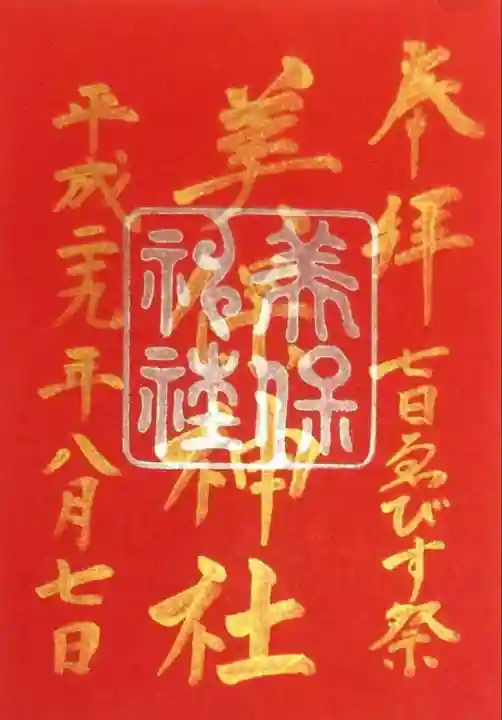 奉拝
七日ゑびす祭
美保神社
美保
神社
平成二九年八月七日